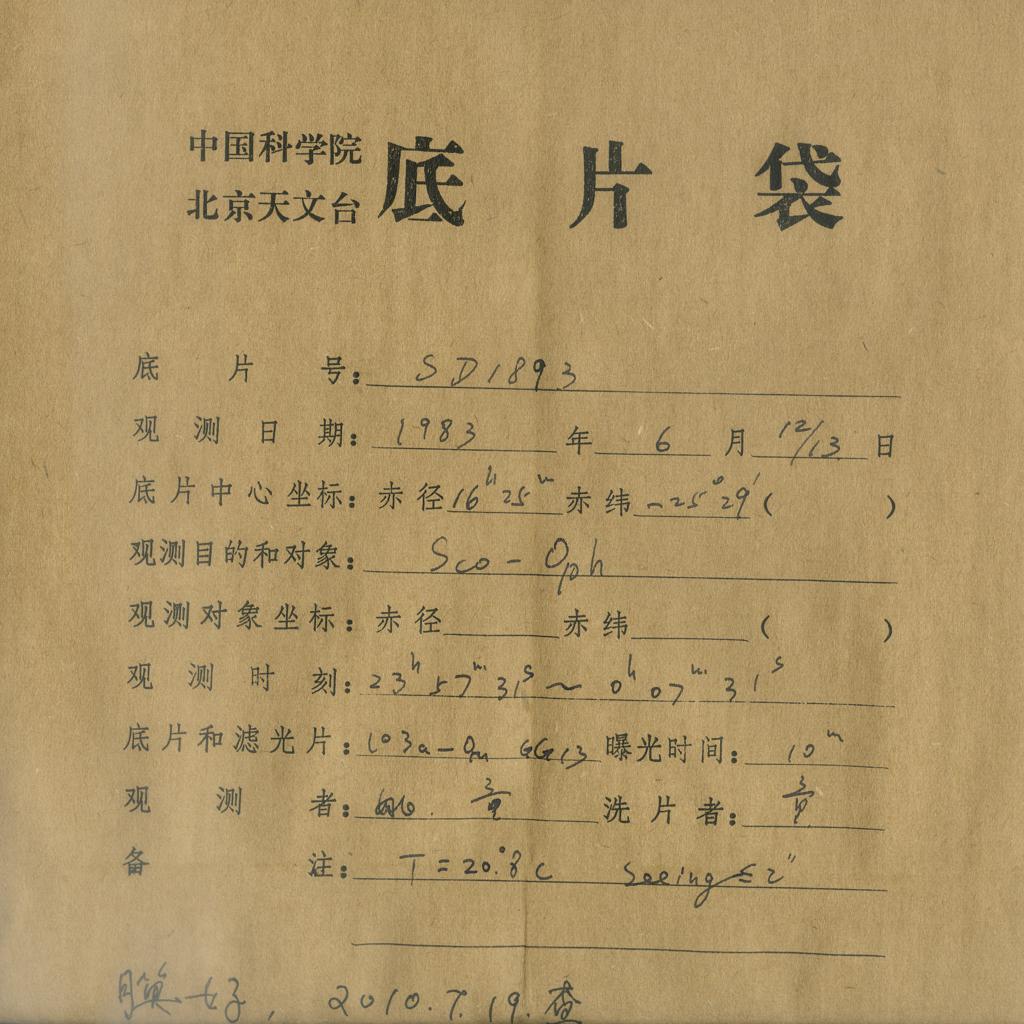 中国科学院
北京天文台
底片袋
底片号：SD1893
观测日期：1983年6月12/13日
底片中心坐标：赤径16h25m赤纬-25°29′（ ）
观测目的和对象：Sco-Oph
观测对象坐标：赤径 赤纬 （ ）
观测时刻：23h57m31s～0h07m31s
底片和滤光片：103a-O GG13 曝光时间：10m
观测者：姚. 洗片者：
备注：T=20.°8C Seeing≤2″
膜好, 2010.7.19.查